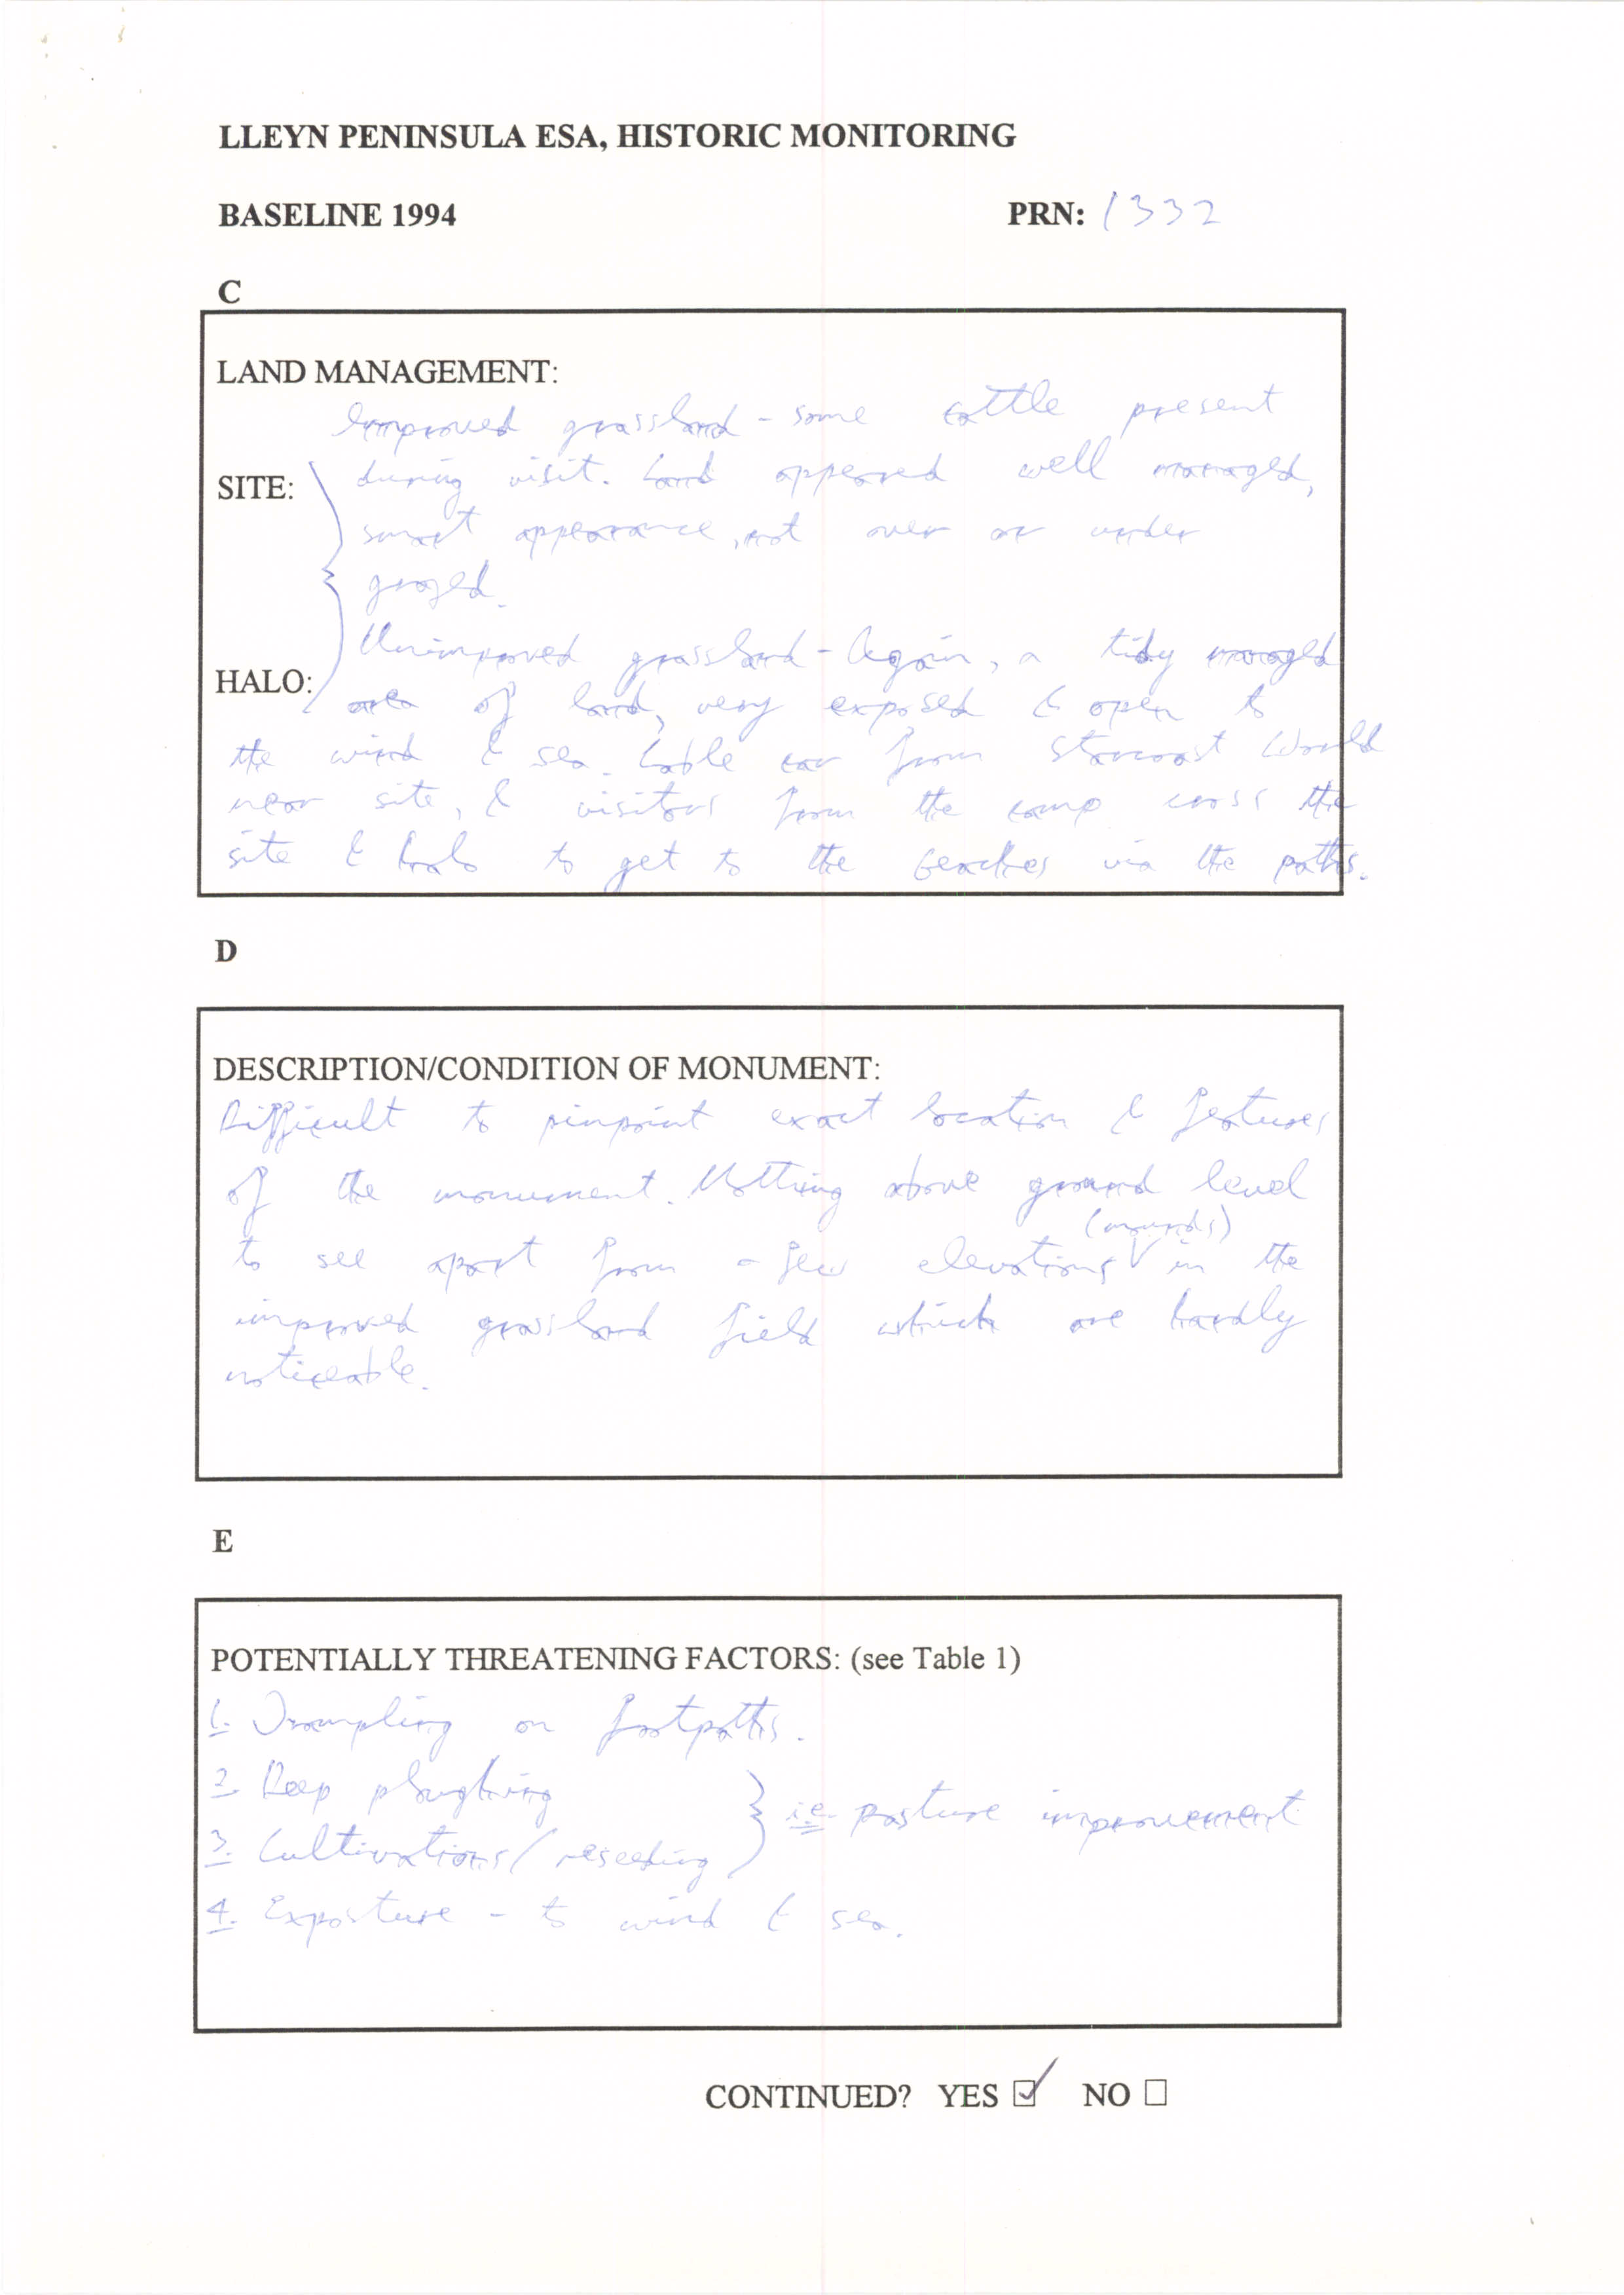 LLEYN PENINSULA ESA, HISTORIC MONITORING
BASELINE 1994 PRN: 1332
C
LAND MANAGEMENT:
Improved grassland - some cattle present
SITE: during visit. Land appeared well managed,
smart appearance, not over or under
grazed.
Unimproved grassland - Again, a tidy managed
HALO: area of land, very exposed & open to
the wind & sea. Cable car from Starcoast World
near site, & visitors from the camp cross the
site & halo to get to the beaches via the paths.
D
DESCRIPTION/CONDITION OF MONUMENT:
Difficult to pinpoint exact location & features
of the monument. Nothing above ground level
(mounds)
to see apart from a few elevations in the
improved grassland field which are hardly
noticeable.
E
POTENTIALLY THREATENING FACTORS: (see Table 1)
1. Trampling on footpaths.
2. Deep ploughing
} i.e. pasture improvement
3. Cultivations/reseeding
4. Exposture - to wind & sea.
CONTINUED? YES ☑ NO ☐